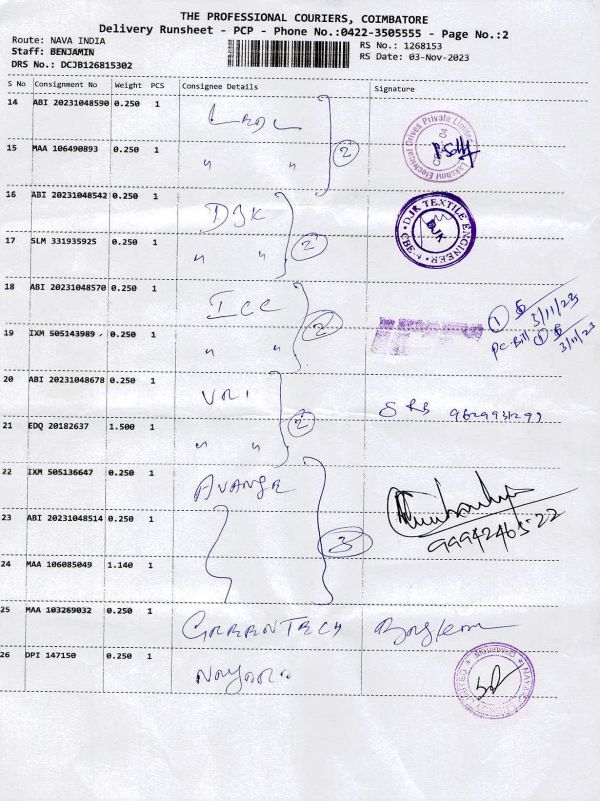 THE PROFESSIONAL COURIERS, COIMBATORE
Delivery Runsheet - PCP - Phone No.:0422-3505555 - Page No.:2
Route: NAVA INDIA
RS No.: 1268153
Staff: BENJAMIN
RS Date: 03-Nov-2023
DRS No.: DCJB126815302
S No Consignment No Weight PCS Consignee Details Signature
14 ABI 20231048590 0.250 1
Lakshmi Electrical Drives Private Limited
15 MAA 106490893 0.250 1 " " 2
16 ABI 20231048542 0.250 1 DJK
DJK TEXTILE ENGINEER CBE-4 DJK
17 SLM 331935925 0.250 1 " " 2
18 ABI 20231048570 0.250 1 ICC
1 3/11/23
19 IXM 505143989 0.250 1 " " 2
PC-Bill 1 3/11/23
20 ABI 20231048678 0.250 1 VRI
SRB 9629931299
21 EDQ 20182637 1.500 1 " " 2
22 IXM 505136647 0.250 1
23 ABI 20231048514 0.250 1 3
9994246522
24 MAA 106085049 1.140 1
25 MAA 103269032 0.250 1 GREENTECH
26 DPI 147150 0.250 1 Nayara